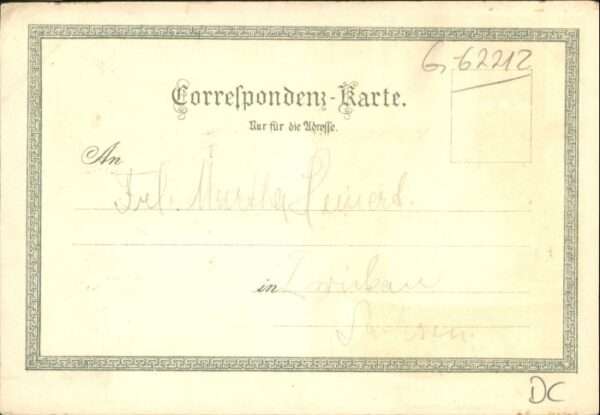 G 62212
Correspondenz-Karte.
Nur für die Adresse.
An
Frl. Martha
in Zwickau
Sachsen.
DC